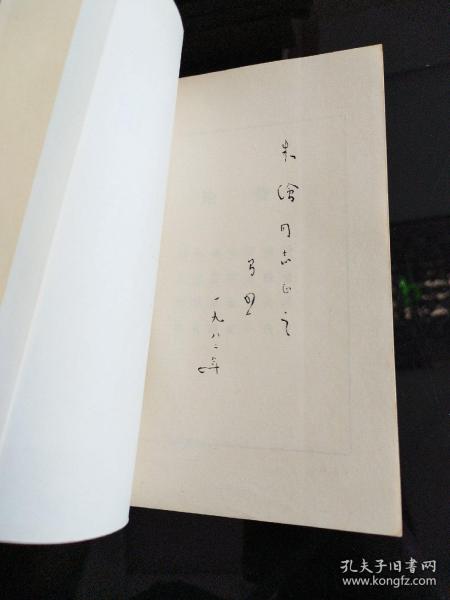 朱浍同志正之
马
一九八二年
孔夫子旧书网
www.kongfz.com